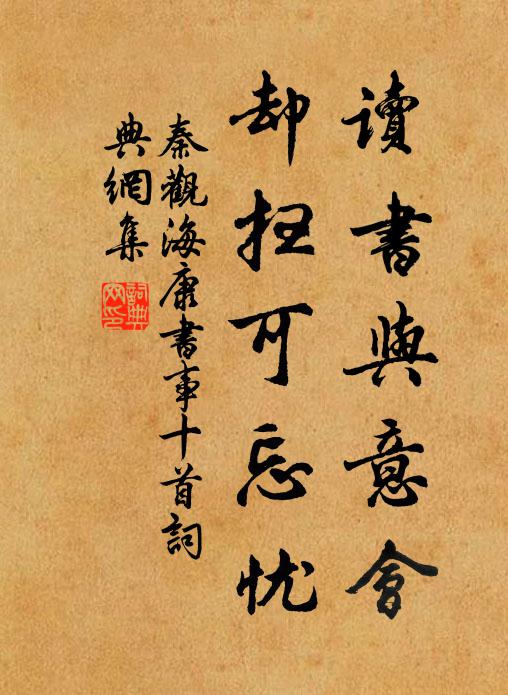 讀書與意會
却掃可忘忧
秦觀海康書事十首詞
典網集
詞典網印